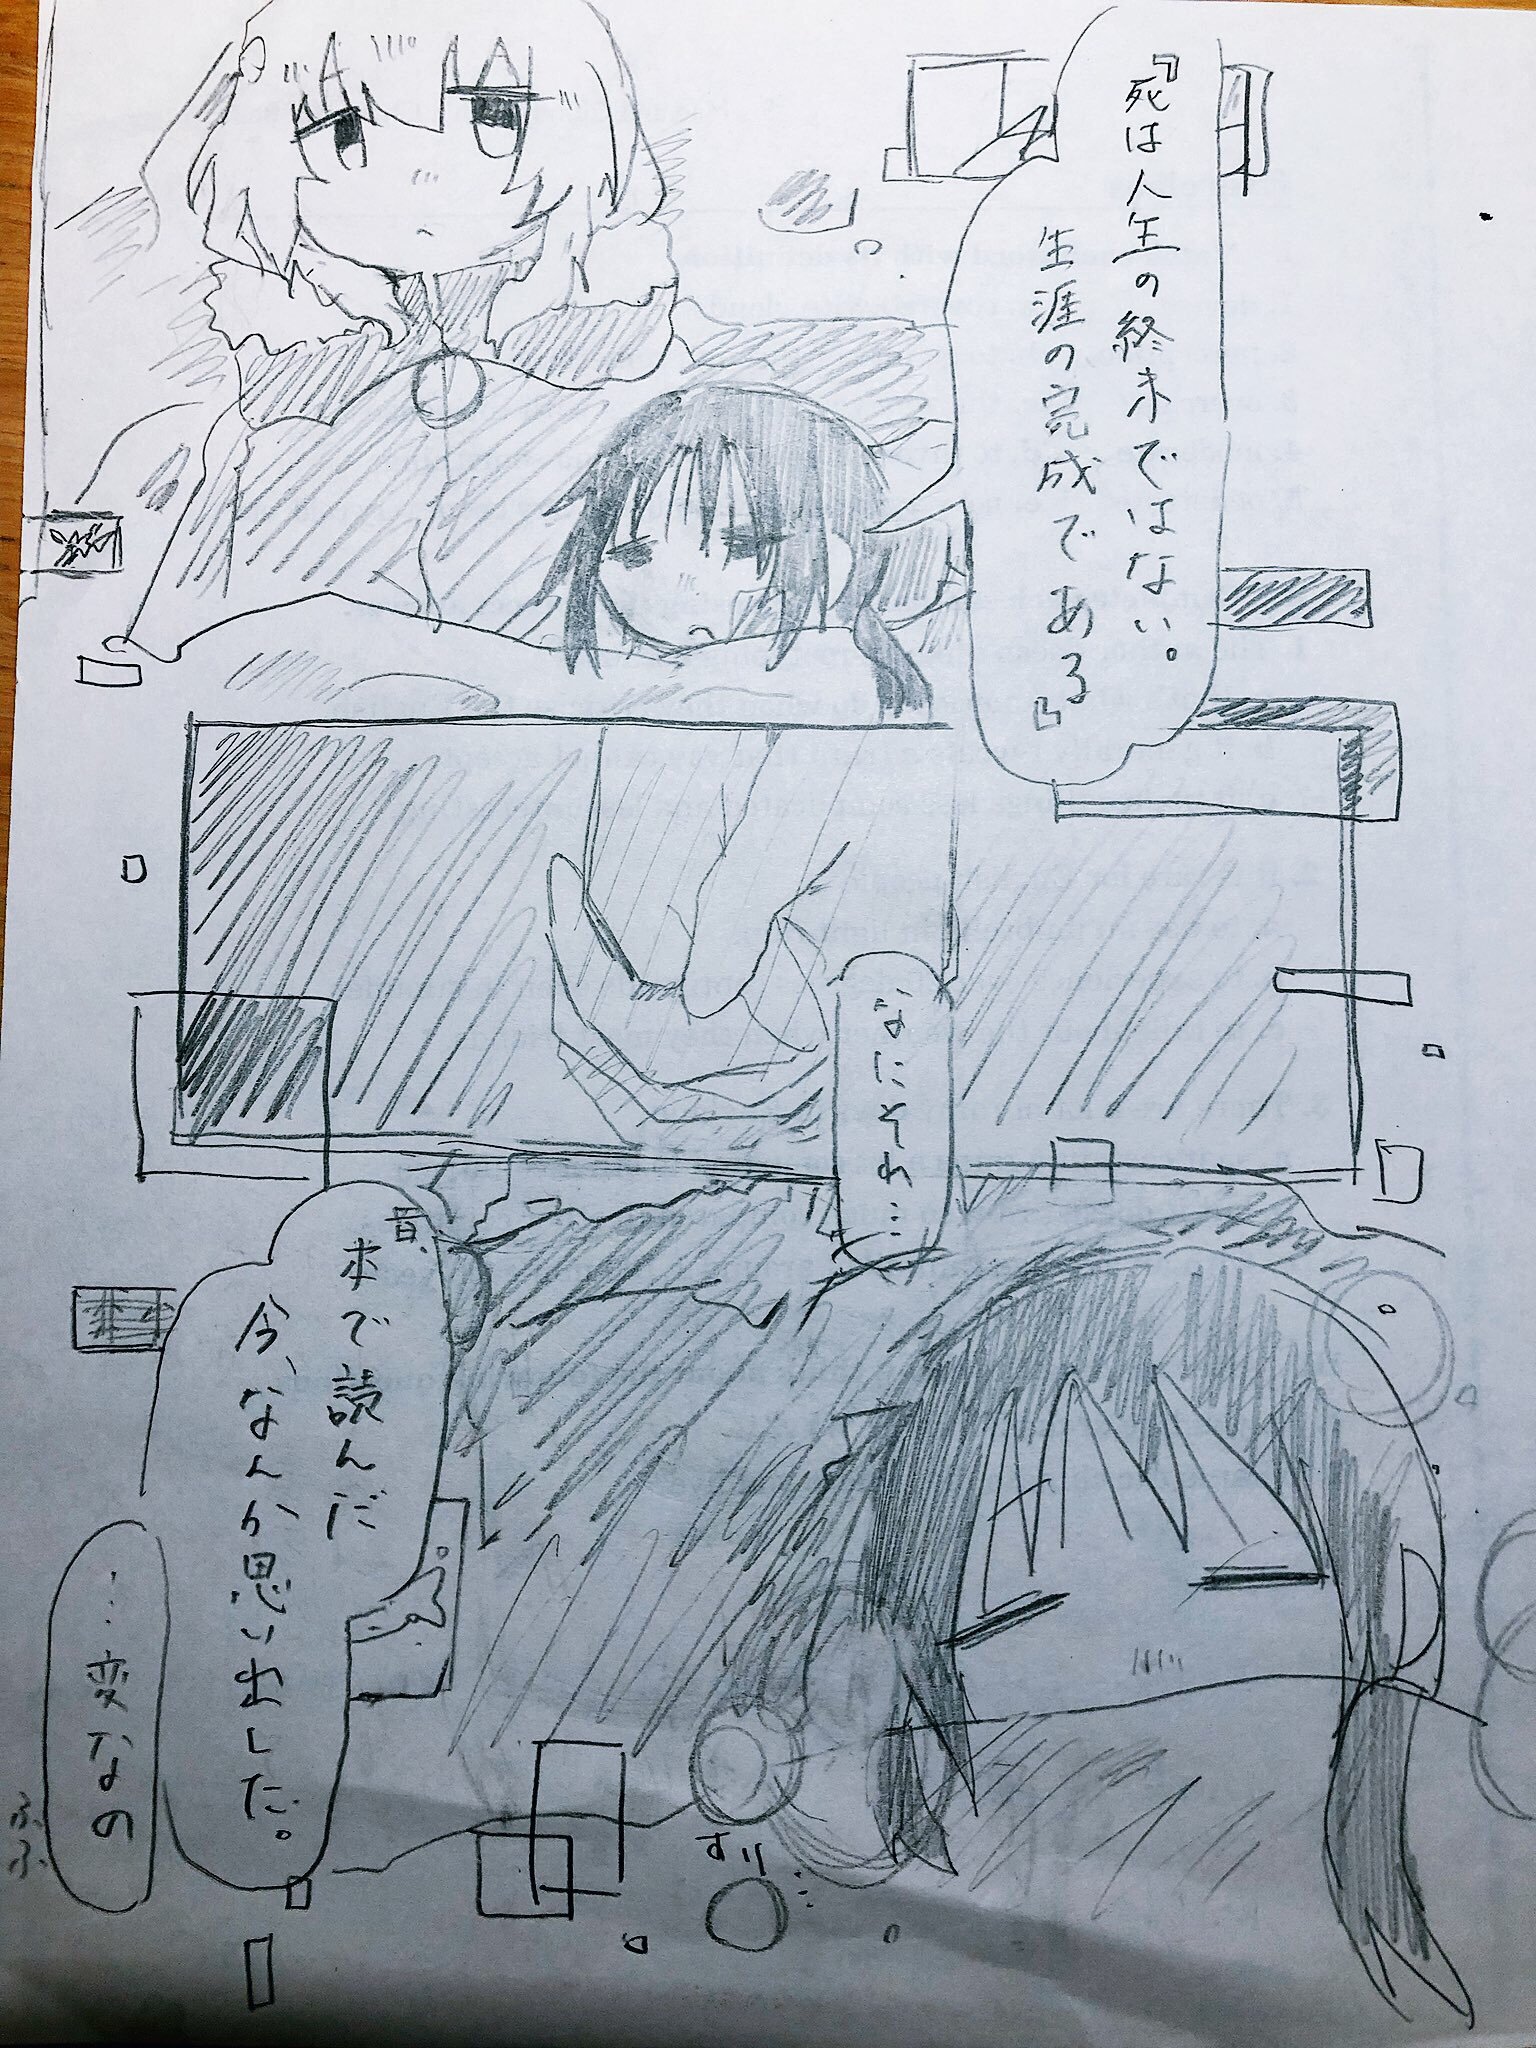 『死は人生の終末ではない。
生涯の完成である』
なにそれ…
昔、
本で読んだ
今、なんか思い出した。
…変なの
ふふ
すり…